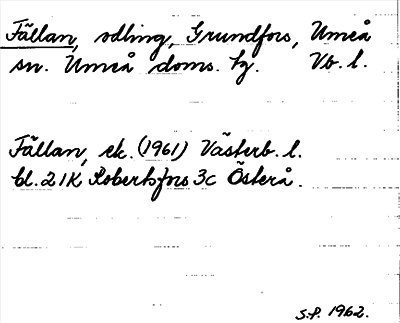 Fällan, odling, Grundfors, Umeå
sn. Umeå doms. hg. Vb. l.
Fällan, ek. (1961) Västerb. l.
bl. 21K Robertsfors 3c Österå.
S.P. 1962.